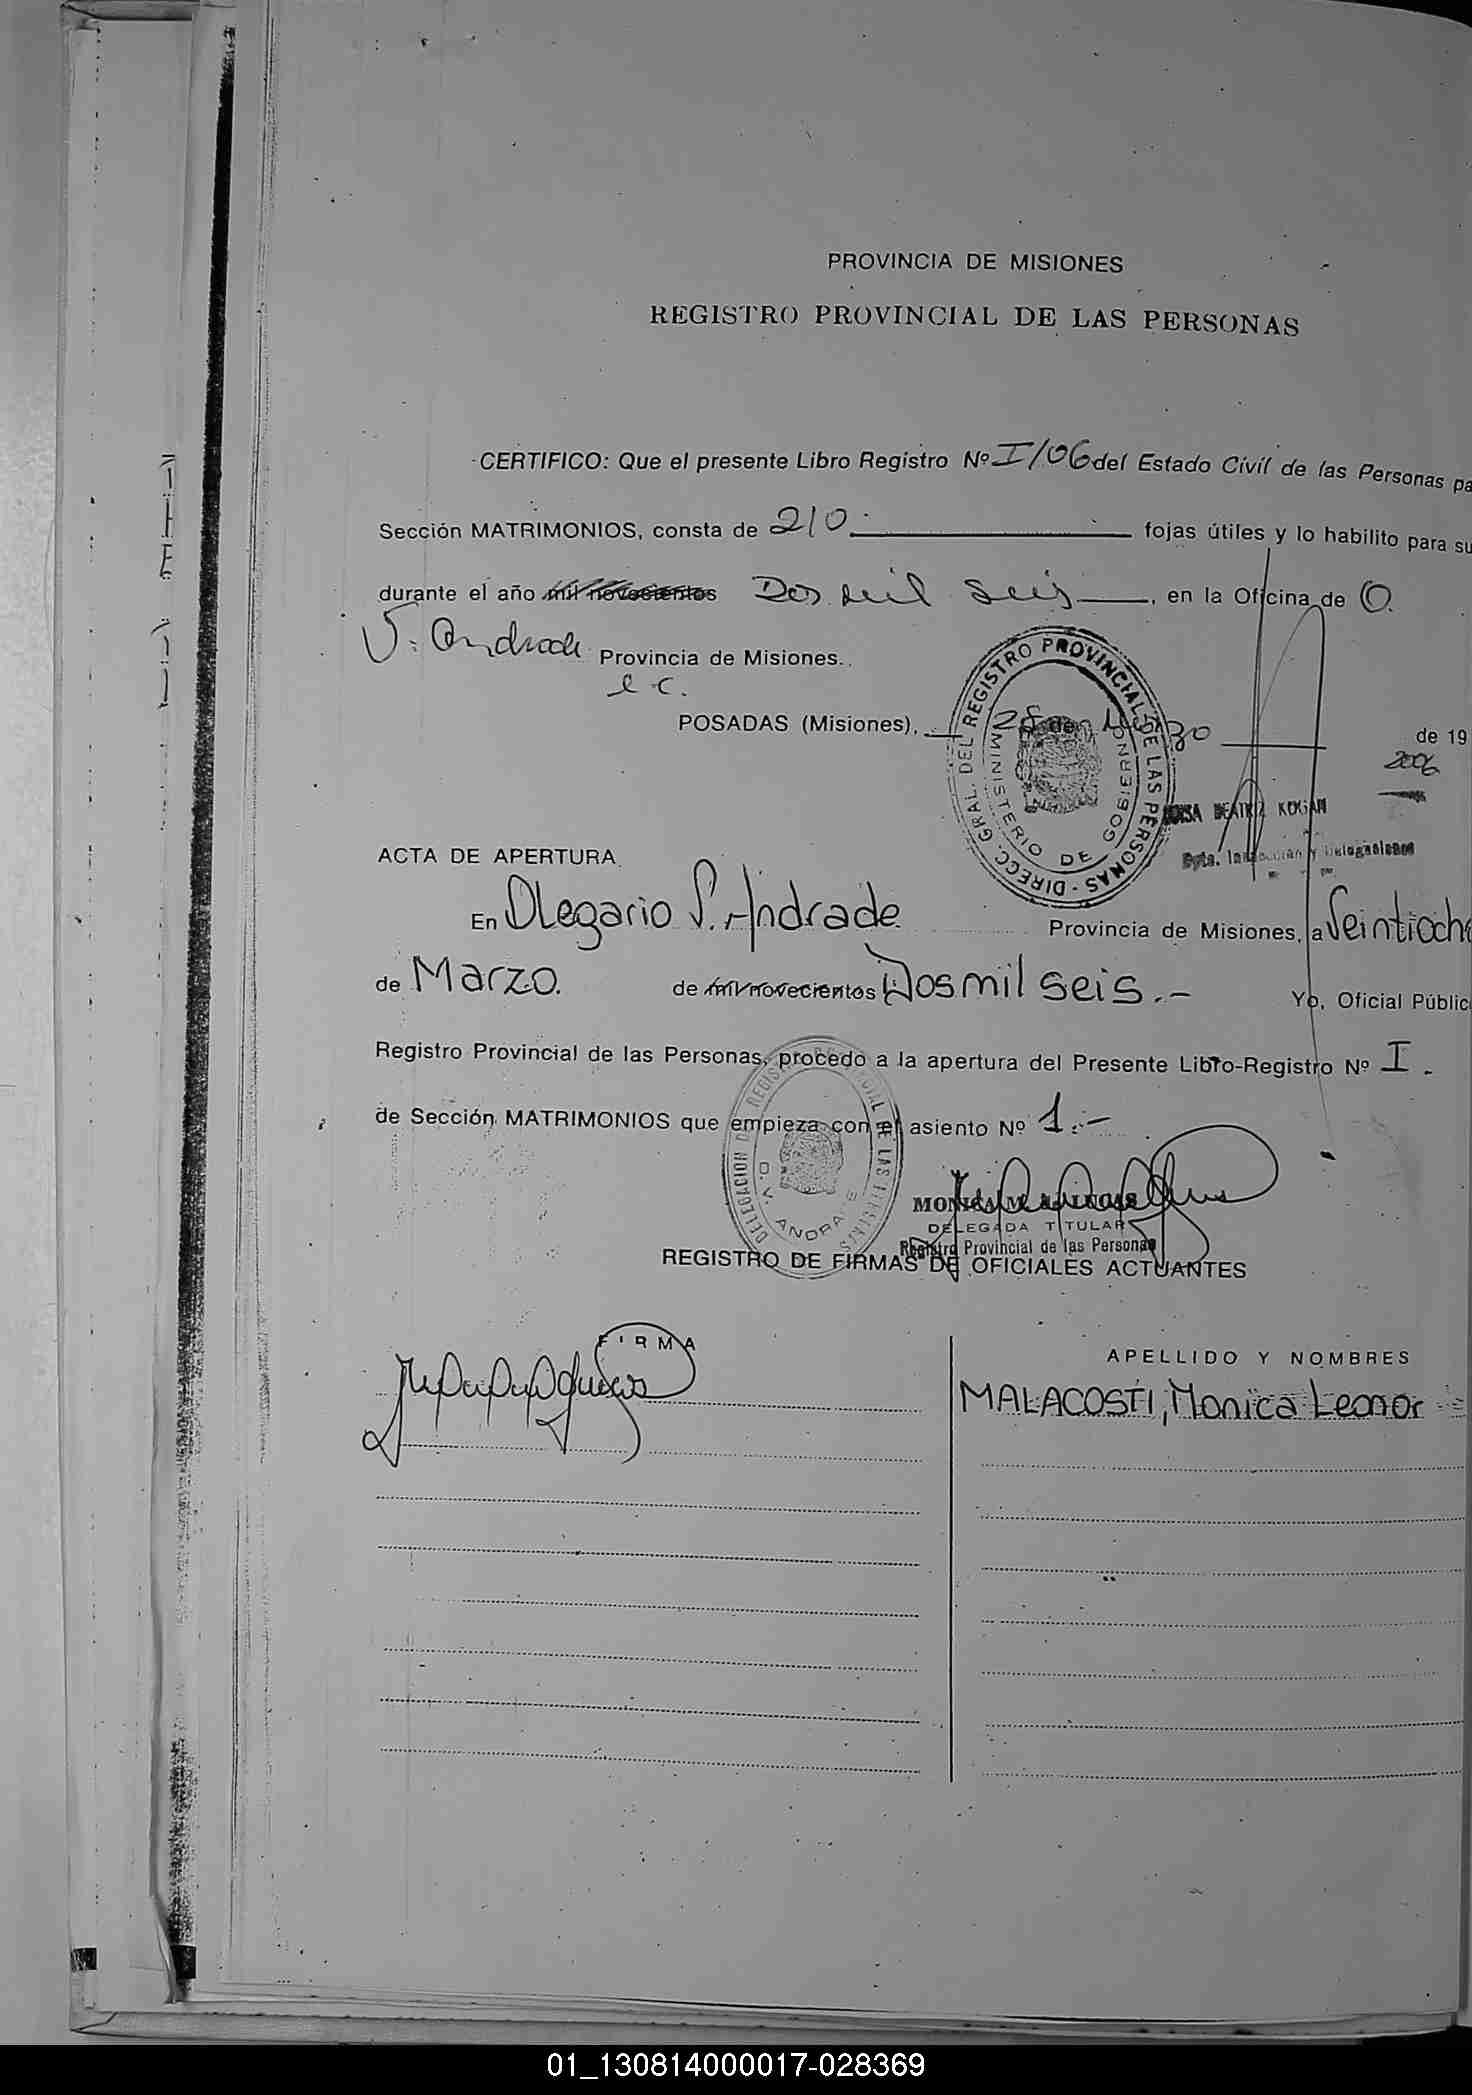 PROVINCIA DE MISIONES
REGISTRO PROVINCIAL DE LAS PERSONAS
CERTIFICO: Que el presente Libro Registro Nº I/06 del Estado Civil de las Personas pa
Sección MATRIMONIOS, consta de 210.- fojas útiles y lo habilito para su
durante el año mil novecientos Dos mil seis, en la Oficina de O.
V. Andrade Provincia de Misiones.
POSADAS (Misiones), 28 de Marzo de 19
2006
DIRECC. GRAL. DEL REGISTRO PROVINCIAL DE LAS PERSONAS
MINISTERIO DE GOBIERNO
BEATRIZ KOGAN
ACTA DE APERTURA
En Olegario V. Andrade Provincia de Misiones, a Veintioch
de Marzo. de mil novecientos Dos mil seis.- Yo, Oficial Públic
Registro Provincial de las Personas, procedo a la apertura del Presente Libro-Registro Nº I.
de Sección MATRIMONIOS que empieza con el asiento Nº 1.-
O. V. ANDRADE
DELEGADA TITULAR
Registro Provincial de las Personas
REGISTRO DE FIRMAS DE OFICIALES ACTUANTES
FIRMA
APELLIDO Y NOMBRES
MALACOSTI, Monica Leonor
01_130814000017-028369